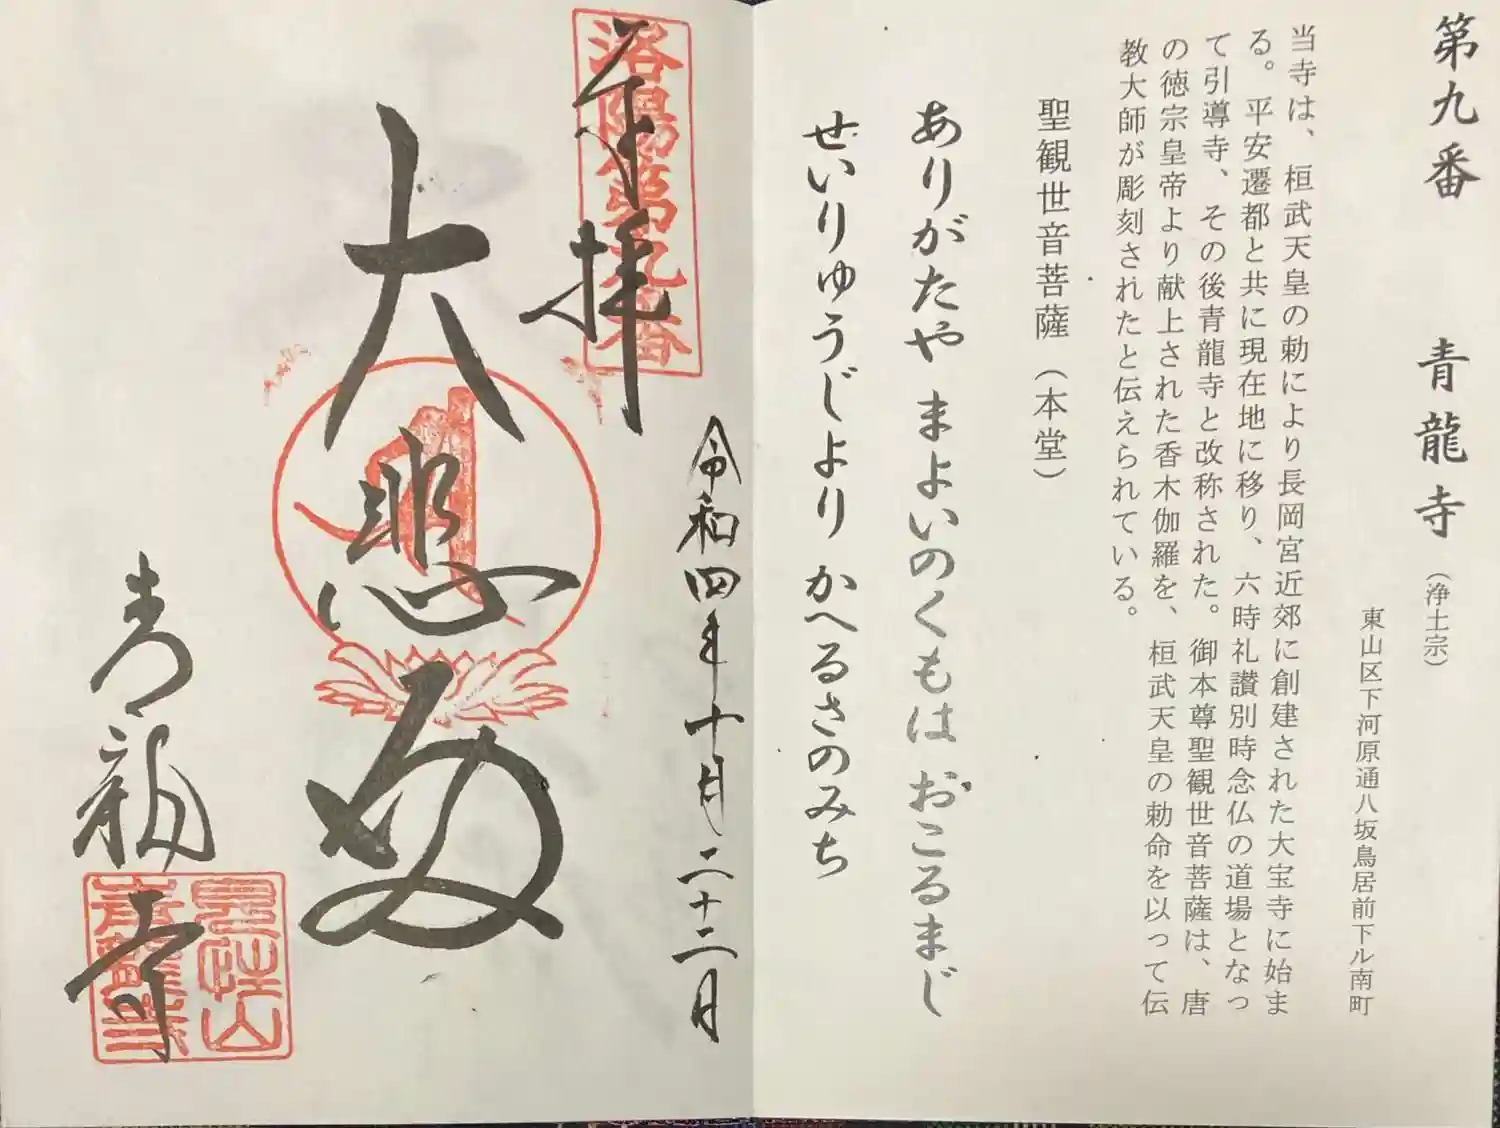 第九番　青龍寺（浄土宗）
東山区下河原通八坂鳥居前下ル南町
当寺は、桓武天皇の勅により長岡宮近郊に創建された大宝寺に始ま
る。平安遷都と共に現在地に移り、六時礼讃別時念仏の道場となっ
て引導寺、その後青龍寺と改称された。御本尊聖観世音菩薩は、唐
の徳宗皇帝より献上された香木伽羅を、桓武天皇の勅命を以って伝
教大師が彫刻されたと伝えられている。
聖観世音菩薩（本堂）
ありがたや まよいのくもは おこるまじ
せいりゆうじより かへるさのみち
洛陽第九番
奉拝
令和四年十月二十二日
大悲殿
青龍寺
見性山
青龍寺